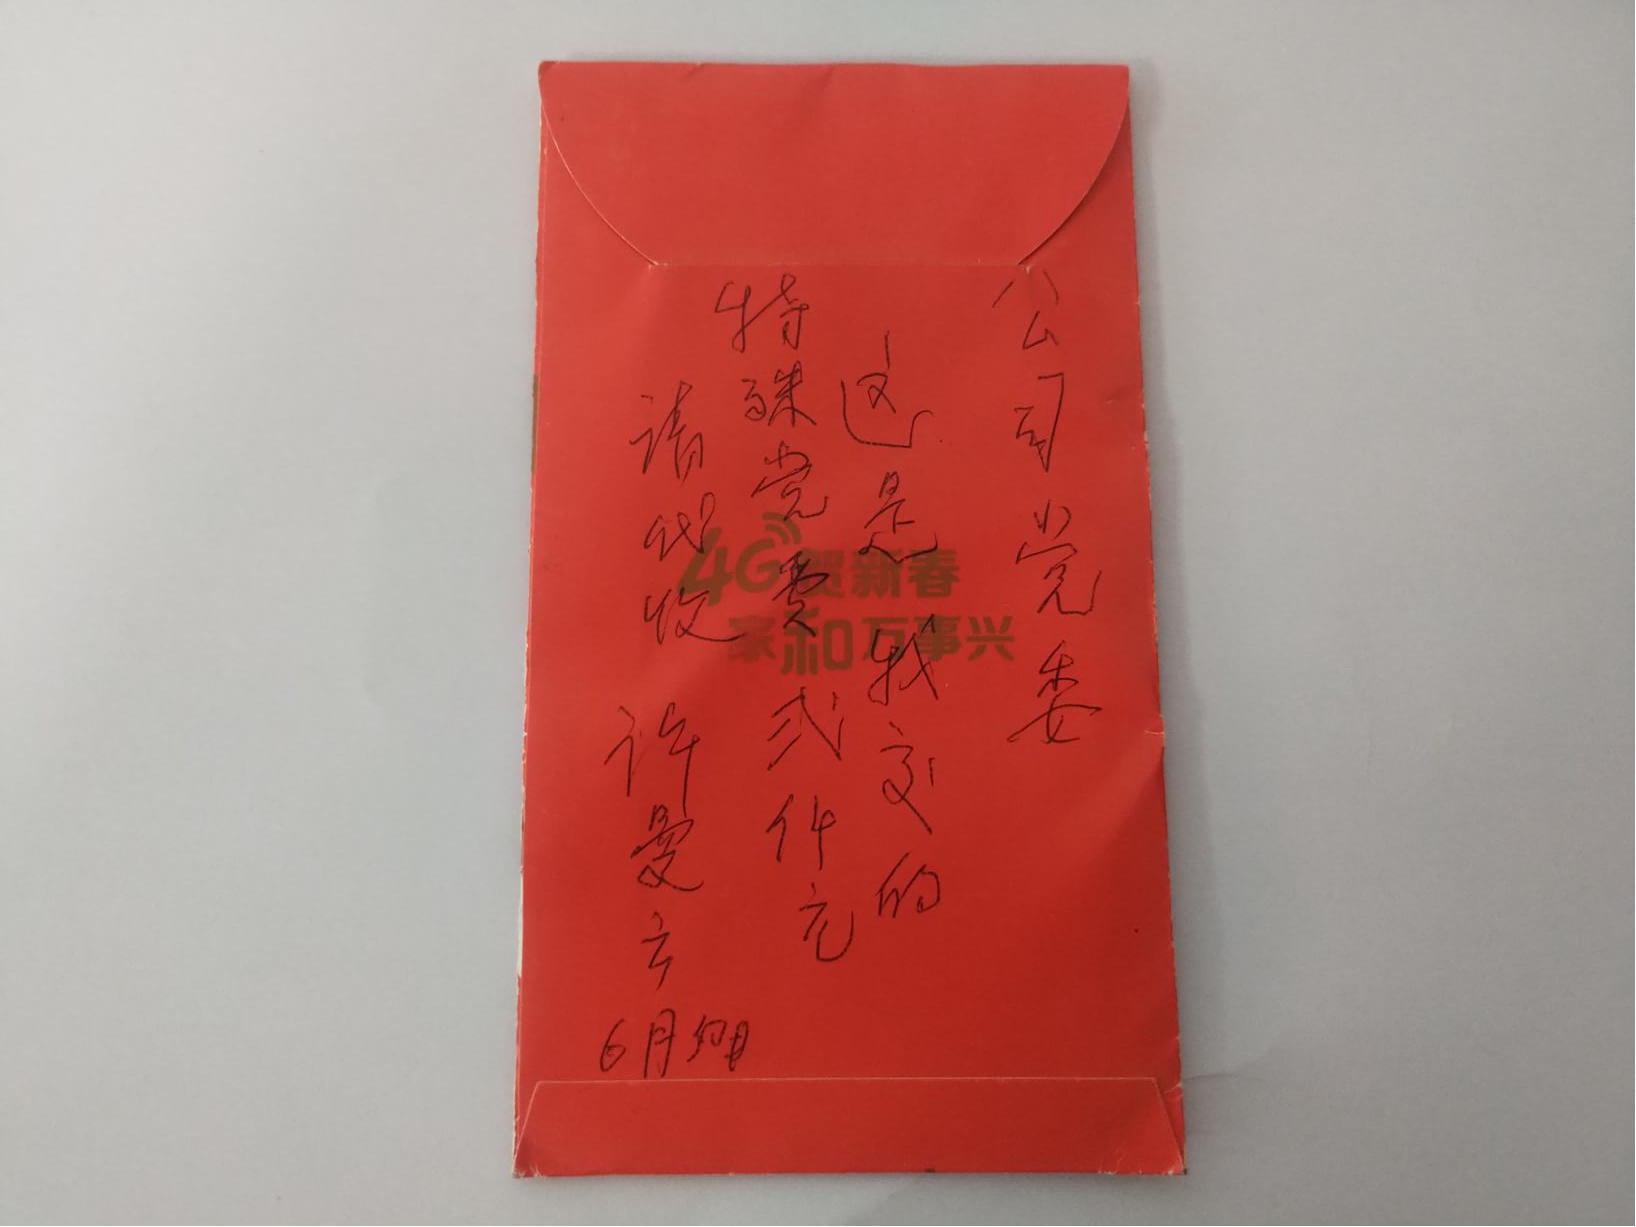 公司党委
这是我交的
特殊党费弍仟元
请代收
许曼云
6月
4G贺新春
家和万事兴